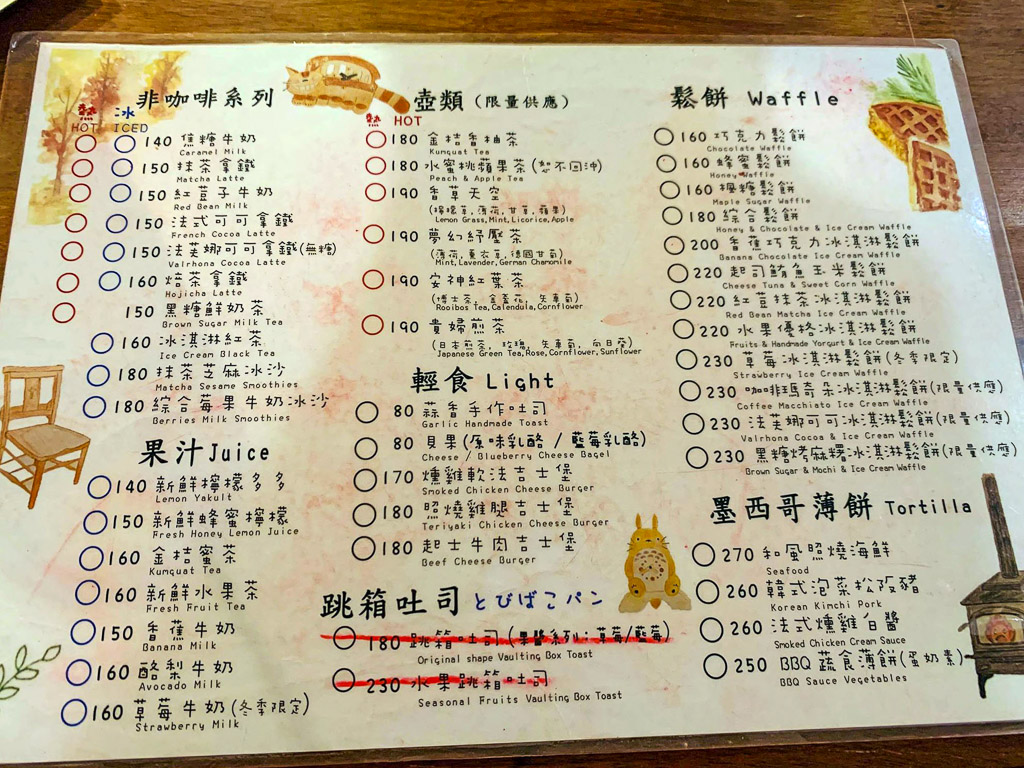 非咖啡系列
熱 冰
HOT ICED
140 焦糖牛奶
Caramel Milk
150 抹茶拿鐵
Matcha Latte
150 紅荳子牛奶
Red Bean Milk
150 法式可可拿鐵
French Cocoa Latte
150 法芙娜可可拿鐵(無糖)
Valrhona Cocoa Latte
160 焙茶拿鐵
Hojicha Latte
150 黑糖鮮奶茶
Brown Sugar Milk Tea
160 冰淇淋紅茶
Ice Cream Black Tea
180 抹茶芝麻冰沙
Matcha Sesame Smoothies
180 綜合莓果牛奶冰沙
Berries Milk Smoothies
果汁Juice
140 新鮮檸檬多多
Lemon Yakult
150 新鮮蜂蜜檸檬
Fresh Honey Lemon Juice
160 金桔蜜茶
Kumquat Tea
160 新鮮水果茶
Fresh Fruit Tea
150 香蕉牛奶
Banana Milk
160 酪梨牛奶
Avocado Milk
160 草莓牛奶(冬季限定)
Strawberry Milk
壺類(限量供應)
熱 HOT
180 金桔香柚茶
Kumquat Tea
180 水蜜桃蘋果茶(恕不回沖)
Peach & Apple Tea
190 香草天空
(檸檬草, 薄荷, 甘草, 蘋果)
Lemon Grass,Mint,Licorice,Apple
190 夢幻紓壓茶
(薄荷, 薰衣草, 德國甘菊)
Mint,Lavender,German Chamomile
190 安神紅葉茶
(博士茶, 金盞花, 矢車菊)
Rooibos Tea,Calendula,Cornflower
190 貴婦煎茶
(日本煎茶, 玫瑰, 矢車菊, 向日葵)
Japanese Green Tea,Rose,Cornflower,Sunflower
輕食 Light
80 蒜香手作吐司
Garlic Handmade Toast
80 貝果(原味乳酪 / 藍莓乳酪)
Cheese / Blueberry Cheese Bagel
170 燻雞軟法吉士堡
Smoked Chicken Cheese Burger
180 照燒雞腿吉士堡
Teriyaki Chicken Cheese Burger
180 起士牛肉吉士堡
Beef Cheese Burger
跳箱吐司 とびばこパン
180 跳箱吐司(果醬系列：草莓/藍莓)
Original shape Vaulting Box Toast
230 水果跳箱吐司
Seasonal Fruits Vaulting Box Toast
鬆餅 Waffle
160 巧克力鬆餅
Chocolate Waffle
160 蜂蜜鬆餅
Honey Waffle
160 楓糖鬆餅
Maple Sugar Waffle
180 綜合鬆餅
Honey & Chocolate & Ice Cream Waffle
200 香蕉巧克力冰淇淋鬆餅
Banana Chocolate Ice Cream Waffle
220 起司鮪魚玉米鬆餅
Cheese Tuna & Sweet Corn Waffle
220 紅荳抹茶冰淇淋鬆餅
Red Bean Matcha Ice Cream Waffle
220 水果優格冰淇淋鬆餅
Fruits & Handmade Yorgurt & Ice Cream Waffle
230 草莓冰淇淋鬆餅(冬季限定)
Strawberry Ice Cream Waffle
230 咖啡瑪奇朵冰淇淋鬆餅(限量供應)
Coffee Macchiato Ice Cream Waffle
230 法芙娜可可冰淇淋鬆餅(限量供應)
Valrhona Cocoa & Ice Cream Waffle
230 黑糖烤麻糬冰淇淋鬆餅(限量供應)
Brown Sugar & Mochi & Ice Cream Waffle
墨西哥薄餅 Tortilla
270 和風照燒海鮮
Seafood
260 韓式泡菜松阪豬
Korean Kimchi Pork
260 法式燻雞白醬
Smoked Chicken Cream Sauce
250 BBQ 蔬食薄餅(蛋奶素)
BBQ Sauce Vegetables